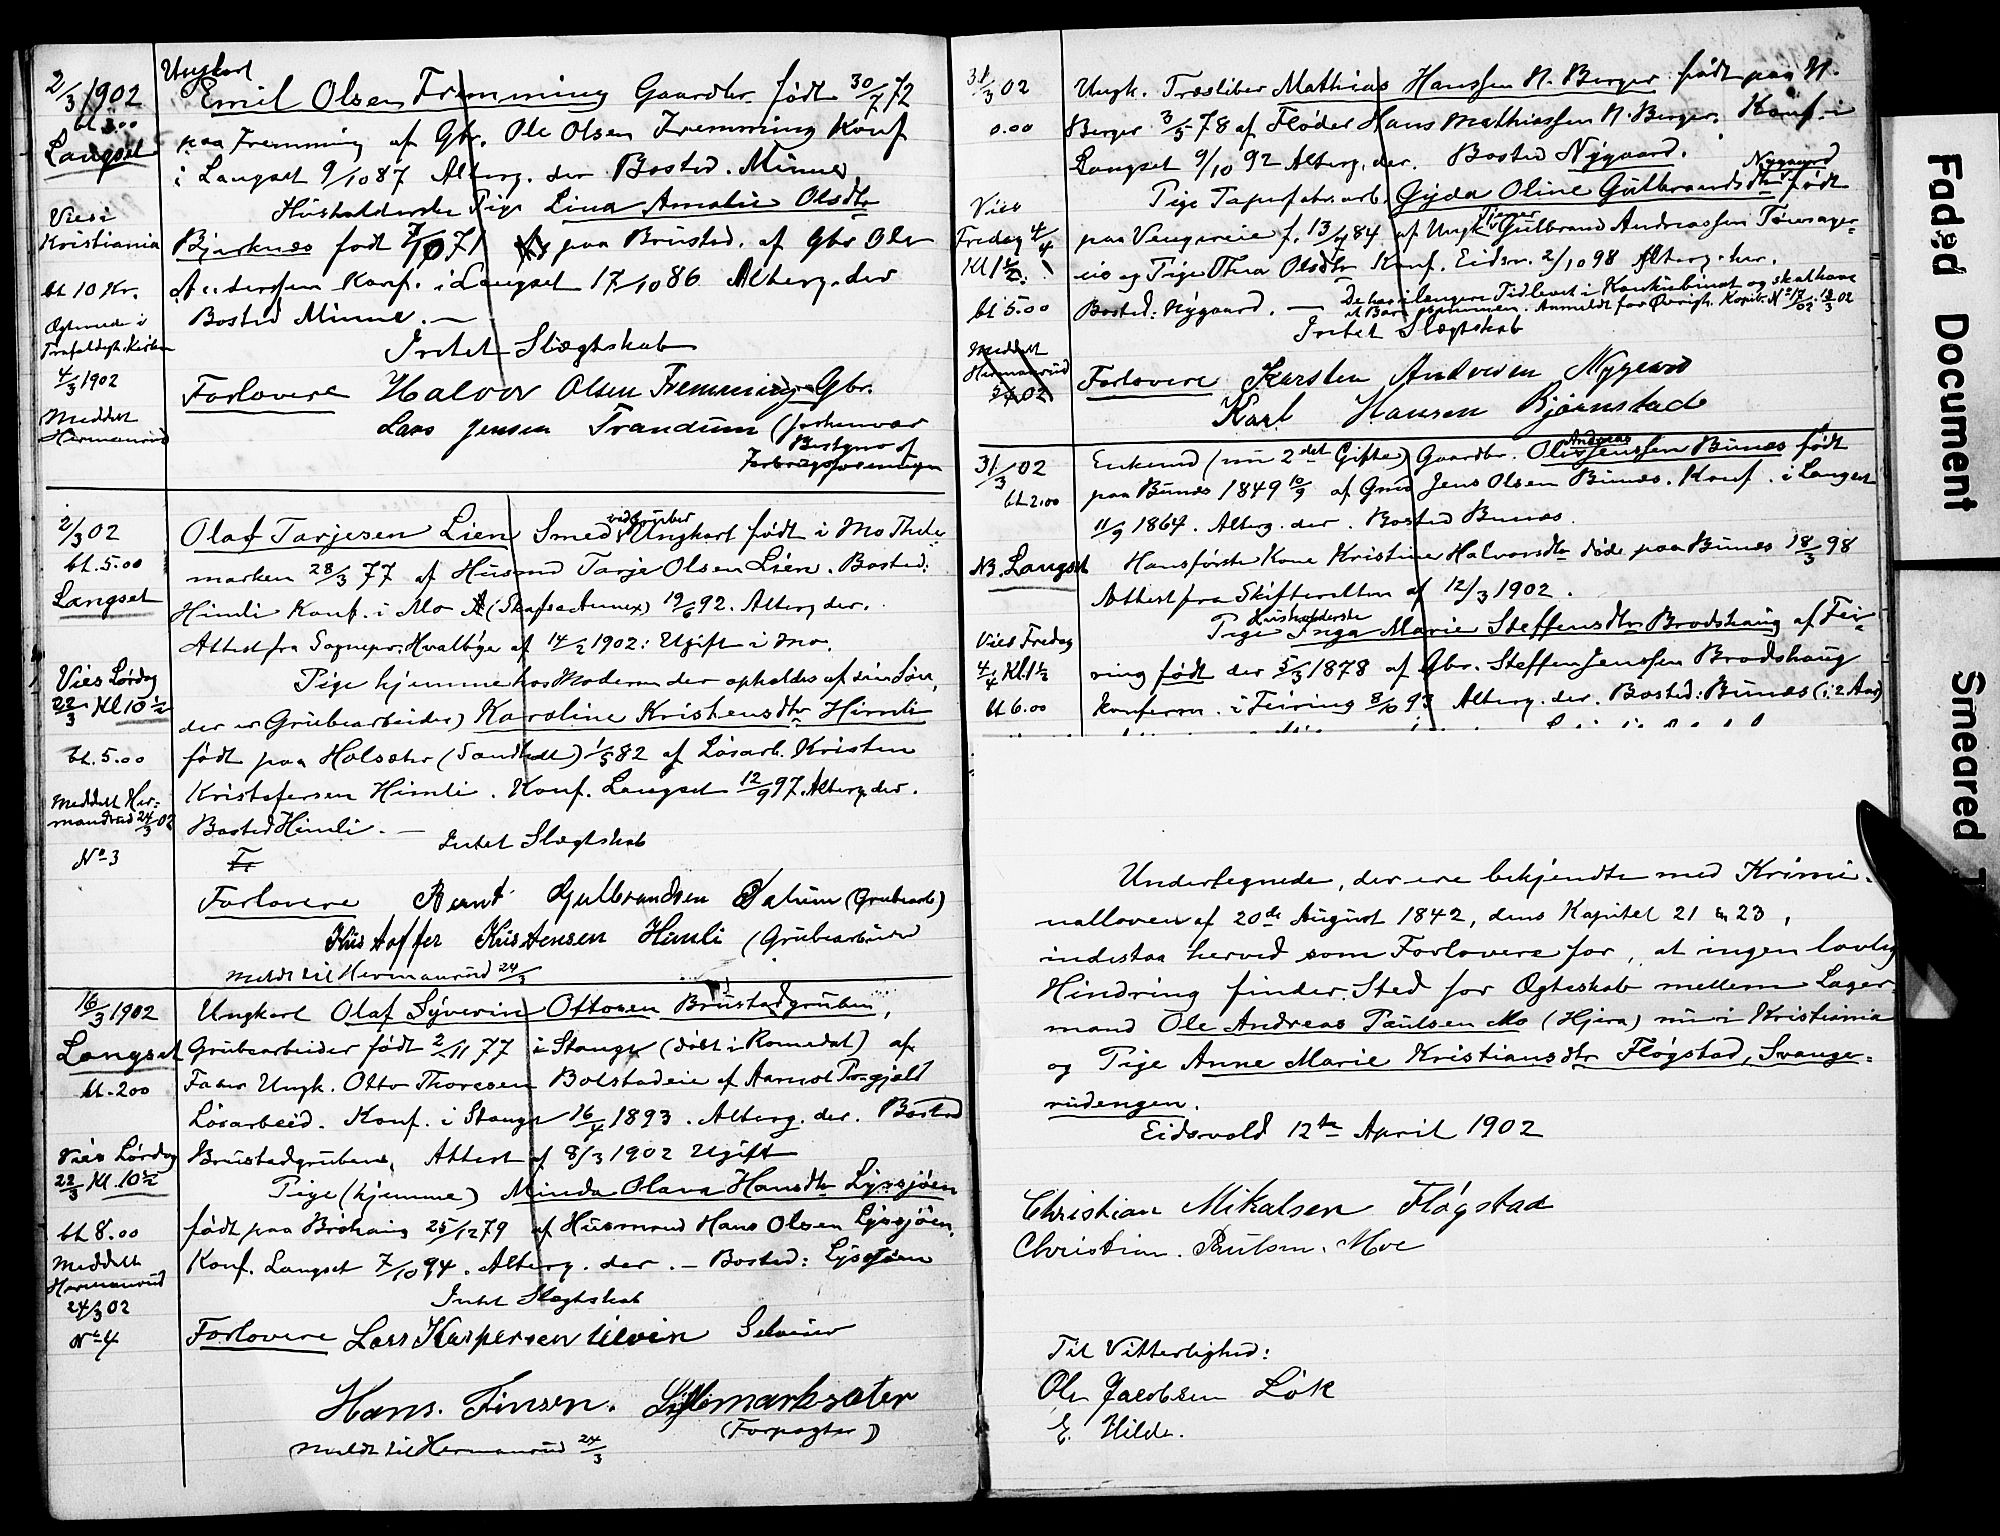 2/3 1902
bt 3.00
Langset
Vies i
Kristiania
bt 10 Kr.
4/3 1902
Meddelt
Hermanrud
Ungkarl
Emil Olsen Fremming Gaardbr. født 30/7 72
paa Fremming af Gbr. Ole Olsen Fremming Konf
i Langset 9/10 87 Alterg. der Bosted. Minne
Husholderske Pige Lina Amalie Olsdtr
Bjerknes født 7/10 71 paa Brustad. af Gbr Ole
Andersen Konf. i Langset 17/10 86 Alterg. der
Bosted Minne. —
Intet Slægtskab
Forlovere Halvor Olsen Fremming Gbr.
Lars Jensen Trandum (forhenvær
Bestyrer af
2/3 02
bt. 5.00
Langset
Vies Lørdag
22/3 Kl 10 1/2
bt. 5.00
Meddelt Her=
manrud 24/3 02
No 3
Olaf Tarjesen Lien Smed ved Gruber Ungkarl født i Mo Thele=
marken 28/3 77 af Husmd Tarje Olsen Lien. Bosted:
Himli Konf. i Mo (Skafsa Annex) 19/6 92. Alterg der.
Attest fra Sognepr. Hvalbye af 14/2 1902: Ugift i Mo.
Pige hjemme hos Moderen der opholdes af sin Søn,
der er Grubearbeider) Karoline Kristensdtr Himli
født paa Holsæter (Sandhedt) 1/5 82 af Løsarb. Kristen
Kristofersen Himli. Konf. Langset 12/9 97. Alterg. der.
Bosted Himli. —
Intet Slægtskab
Forlovere Bernt Gulbrandsen Dalum (Grubearb)
Kristoffer Kristensen Himli (Grubearbeider
meldt til Hermanrud 24/3
16/3 1902
Langset
bt. 200
Vies Lørdag
22/3 Kl. 10 1/2
bt 8.00
Meddelt
Hermanrud
24/3 02
No 4
Ungkarl Olaf Syverin Ottosen Brustadgruben,
Grubearbeider født 2/11 77 i Stange (døbt i Romedal) af
Fader Ungk. Otto Thoresen Bolstadeie af Aamot Prgjeld
Løsarbeid. Konf. i Stange 16/4 1893. Alterg. der. Bosted
Brustadgruben. Attest af 8/3 1902 Ugift
Pige (hjemme) Minda Olava Hansdtr Lysjøen
født paa Brøhaug 25/12 79 af Husmand Hans Olsen Lysjøen.
Konf. Langset 7/10 94. Alterg. der. — Bosted: Lysjøen
Intet Slægtskab
Forlovere Lars Kaspersen Ulvin Selveier
Hans. Finsen.
(Forpagter)
meldt til Hermanrud 24/3
31/3 02
0.00
Vies
Fredag 4/4
Kl 1 1/2.
bt 5.00
Meddelt
Hermanrud
Ungk. Træsliber Mathias Hanssen N. Berger født paa N.
Berger 3/5 78 af Fløder Hans Mathiassen N. Berger. Konf. i
Langset 9/10 92 Alterg. der. Bosted Nygaard.
Nygaard
Pige Tapetfabr.arb Gyda Oline Gulbrandsdtr født
paa Vengereie f. 13/4 84 af Ungk Gulbrand Andreassen
eie og Pige Thea Olsdtr Konf. Eidsv. 2/10 98 Alterg. her.
Bosted: Nygaard. — De har i længere Tid levet i Konkubinat og skal have
et Barn sammen. Anmeldt for
Intet Slægtskab
Forlovere Karsten Andersen Nygaard
Karl Hansen Bjørnstad
31/3 02
bt 2.00
NB. Langset
Vies Fredag
4/4 Kl. 1 1/2
bt 6.00
Enkemd (nu 2det Gifte) Gaardbr. Ole Andreas Jenssen Bunes født
paa Bunes 1849 10/9 af Gmd Jens Olsen Bunes. Konf. i Langset
11/9 1864. Alterg. der. Bosted Bunes.
Hans første Kone Kristine Halvorsdtr døde paa Bunes 18/3 98
Attest fra Skifteretten af 12/3 1902.
Husholderske
Pige Inga Marie Steffensdtr Brodshaug af Fei=
ring født der 5/3 1878 af Gbr. Steffen Jenssen Brodshaug
konferm. i Feiring 8/10 93 Alterg. der. Bosted: Bunes (i 2 Aar)
Undertegnede, der ere bekjendte med Krimi=
nalloven af 20de August 1842, dens Kapitel 21 & 23,
indestaa herved som Forlovere for, at ingen lovlig
Hindring finder Sted for Ægteskab mellem Lager=
mand Ole Andreas Paulsen Mo (Hjera) nu i Kristiania
og Pige Anne Marie Kristiansdtr Fløgstad, Svange=
rudengen.
Eidsvold 12te April 1902
Christian Mikalsen Fløgstad
Christian. Paulsen. Moe
Til Vitterlighed:
Ole Jacobsen Løk
E. Hilde.
Faded Document
Smeared